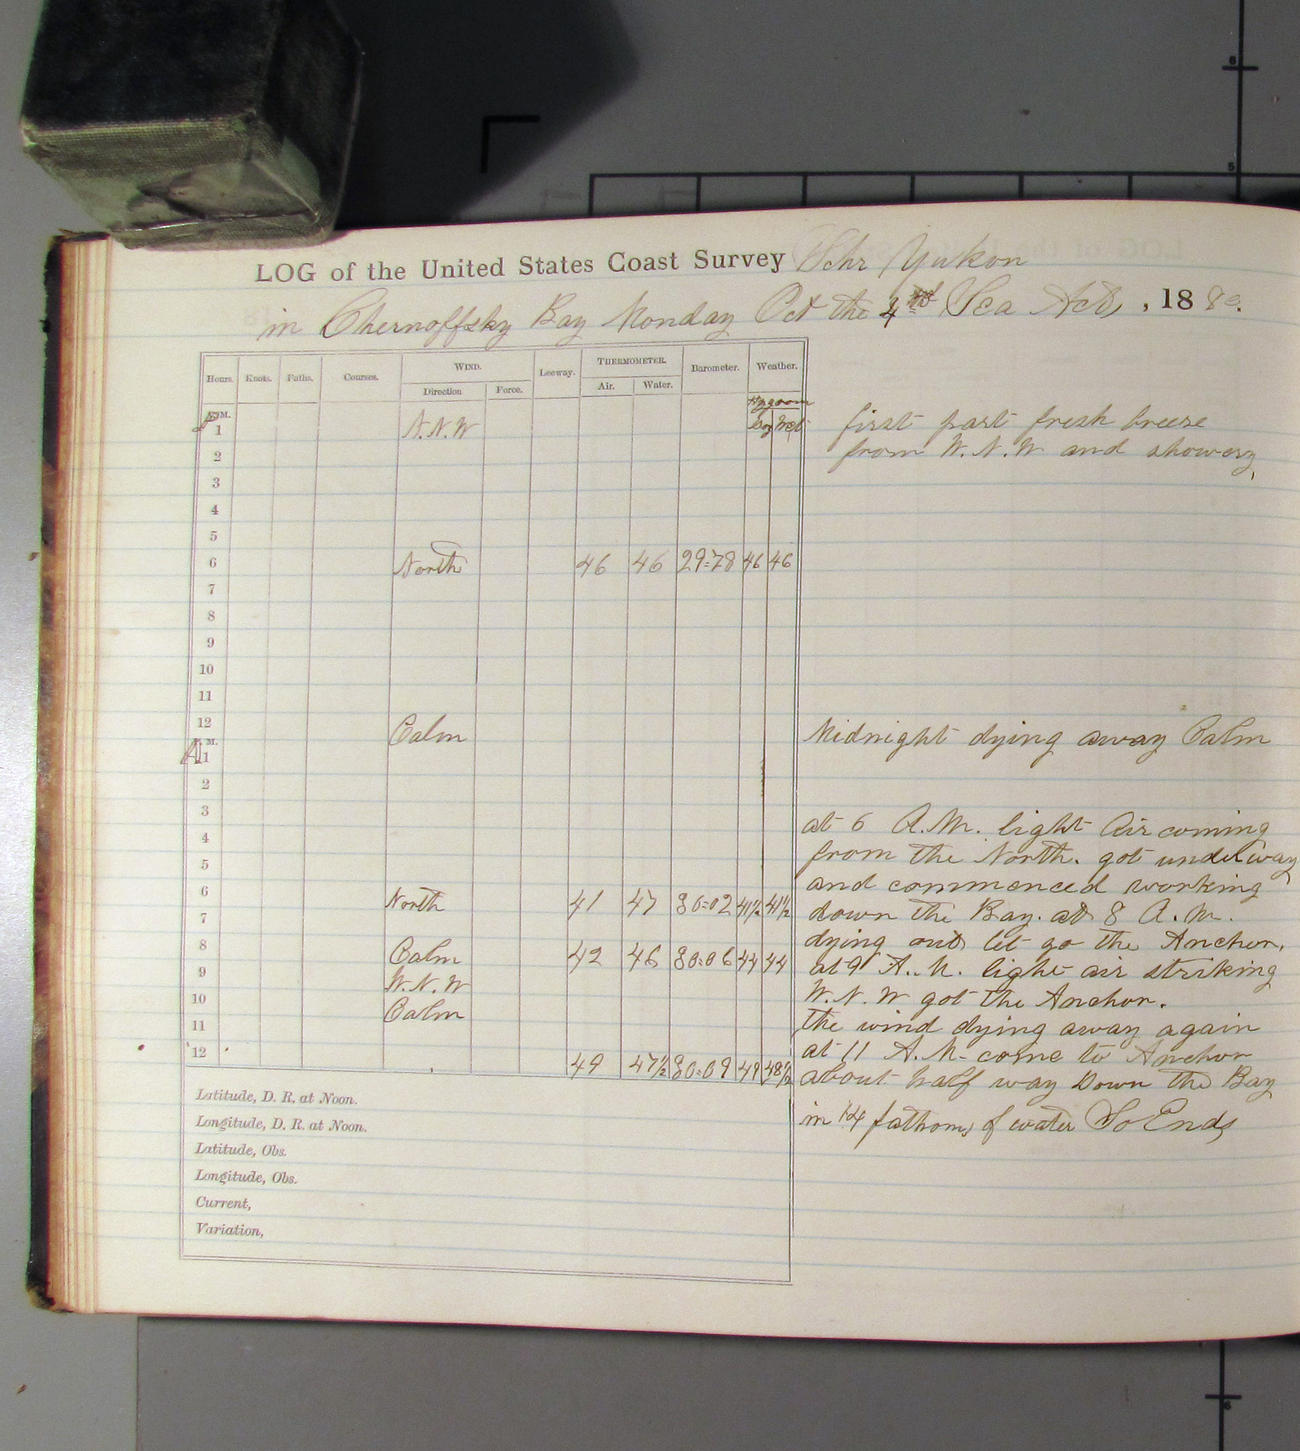 LOG of the United States Coast Survey Schr Yukon
in Chernoffsky Bay Monday Oct the 4th Sea Act, , 1880.
Hours. Knots. Faths. Courses. WIND. Leeway. THERMOMETER. Barometer. Weather.
Direction Force. Air. Water.
Hygrom
Dry Wet
P M.
1 N.N.W first part fresh breese
2 from W.N.W and showery,
3
4
5
6 North 46 46 29:78 46 46
7
8
9
10
11
12 Calm Midnight dying away Calm
A M.
1
2
3 at 6 A.M. light Air coming
4 from the North. got underway
5 and commenced working
6 North 41 47 30:02 41½ 41½ down the Bay. at 8 A.M.
7 dying out let go the Anchor.
8 Calm 42 46 30:06 44 44 at 9 A.M. light air striking
9 W.N.W W.N.W got the Anchor.
10 Calm the wind dying away again
11 at 11 A.M. come to Anchor
12 49 47½ 30:09 49 48½ about half way Down the Bay
in 14 fathoms of water So Ends
Latitude, D. R. at Noon.
Longitude, D. R. at Noon.
Latitude, Obs.
Longitude, Obs.
Current,
Variation,
5
6
6